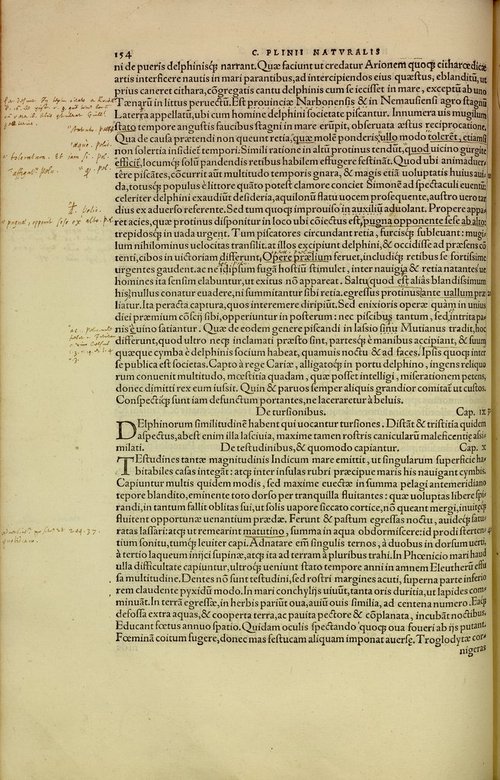 154 C. PLINII NATVRALIS
ni de pueris delphinisq́; narrant. Quæ faciunt ut credatur Arionem quoq; citharœdicæ
artis interficere nautis in mari parantibus, ad intercipiendos eius quæstus, eblanditũ, ut
prius caneret cithara, cõgregatis cantu delphinis cum se iecisset in mare, exceptũ ab uno
Tænarũ in littus peruectũ. Est prouinciæ Narbonensis & in Nemausiensi agro stagnũ
Laterra appellatũ, ubi cum homine delphini societate piscantur. Innumera uis mugilum
stato tempore angustis faucibus stagni in mare erupit, obseruata æstus reciprocatione.
Qua de causa prætendi non queunt retia, quæ molẽ ponderis ullo modo tolerẽt, etiamsi
non solertia insidiet̃ tempori. Simili ratione in altũ protinus tendũt, quod uicino gurgite
efficit̃, locumq́; solũ pandendis retibus habilem effugere festinãt. Quod ubi animaduer
tẽre piscãtes, cõcurrit aũt multitudo temporis gnara, & magis etiã uoluptatis huius auii
da, totusq́; populus è littore quãto potest clamore conciet Simonẽ ad spectaculi euentũ:
celeriter delphini exaudiũt desideria, aquilonũ flatu uocem prosequente, austro uero tar
dius ex aduerso referente. Sed tum quoq; improuiso in auxiliũ aduolant. Propere appa
ret acies, quæ protinus disponitur in loco ubi cõiectus est, pugna opponente sese ab alto:
trepidosq́; in uada urgent. Tum piscatores circundant retia, furcisq́; subleuant: mugi-
lum nihilominus uelocitas transilit. at illos excipiunt delphini, & occidisse ad præsens cõ
tenti, cibos in uictoriam differunt. Opere prælium feruet, includiq́; retibus se fortissime
urgentes gaudent. ac ne id ipsum fugã hostiũ stimulet, inter nauigia & retia natantes ue
homines ita sensim elabuntur, ut exitus nõ apperat. Saltu, quod est aliâs blandissimum
his, nullus conatur euadere, ni summitantur sibi retia. egressus protinus ante uallum præ
liatur. Ita peracta captura, quos interemere diripiũt. Sed enixioris operæ quàm in unius
diei præmium cõscij sibi, opperiuntur in posterum: nec piscibus tantum, sed intrita pa-
nis è uino satiantur. Quæ de eodem genere piscandi in Iassio sinu Mutianus tradit, hoc
differunt, quod ultro neq; inclamati præsto sint, partesq́; è manibus accipiant, & suum
quæque cymba è delphinis socium habeat, quamuis noctu & ad faces. Ipsis quoq; inter
se publica est societas. Capto à rege Cariæ, alligatoq́; in portu delphino, ingens reliquo
rum conuenit multitudo, mœstitia quadam, quæ posset intelligi, miserationem petens,
donec dimitti rex eum iussit. Quin & paruos semper aliquis grandior comitat̃ ut custos.
Conspectiq́; sunt iam defunctum portantes, ne laceraretur à beluis.
De tursionibus. Cap. IX
Delphinorum similitudinẽ habent qui uocantur tursiones. Distãt & tristitia quidem
aspectus, abest enim illa lasciuia, maxime tamen rostris canicularũ maleficentiæ assi
milati. De testudinibus, & quomodo capiantur. Cap. X
Testudines tantæ magnitudinis Indicum mare emittit, ut singularum superficie ha-
bitabiles casas integãt: atq; inter insulas rubri præcipue maris his nauigant cymbis.
Capiuntur multis quidem modis, sed maxime euectæ in summa pelagi antemeridiano
tepore blandito, eminente toto dorso per tranquilla fluitantes: quæ uoluptas libere spi-
randi, in tantum fallit oblitas sui, ut solis uapore siccato cortice, nõ queant mergi, inuitæq́;
fluitent opportunæ uenantium prædæ. Ferunt & pastum egressas noctu, auideq́; satu-
ratas lassari: atq; ut remearint matutino, summa in aqua obdormiscere: id prodi sterten-
tium sonitu, tumq́; leuiter capi. Adnatare em̃ singulis ternos, à duobus in dorsum uerti,
à tertio laqueum inijci supinæ, atq; ita ad terram à pluribus trahi. In Phœnicio mari haud
ulla difficultate capiuntur, ultroq́; ueniunt stato tempore anni in amnem Eleutherũ effu
sa multitudine. Dentes nõ sunt testudini, sed rostri margines acuti, superna parte inferio
rem claudente pyxidũ modo. In mari conchylijs uiuũt, tanta oris duritia, ut lapides com-
minuãt. In terrã egressæ, in herbis pariũt oua, auiũ ouis similia, ad centena numero. Eaq́;
defossa extra aquas, & cooperta terra, ac pauita pectore & cõplanata, incubãt noctibus.
Educant fœtus annuo spatio. Quidam oculis spectando quoq; oua foueri ab ijs putant.
Fœminã coitum fugere, donec mas festucam aliquam imponat auersę. Troglodytæ cor-
nigeras